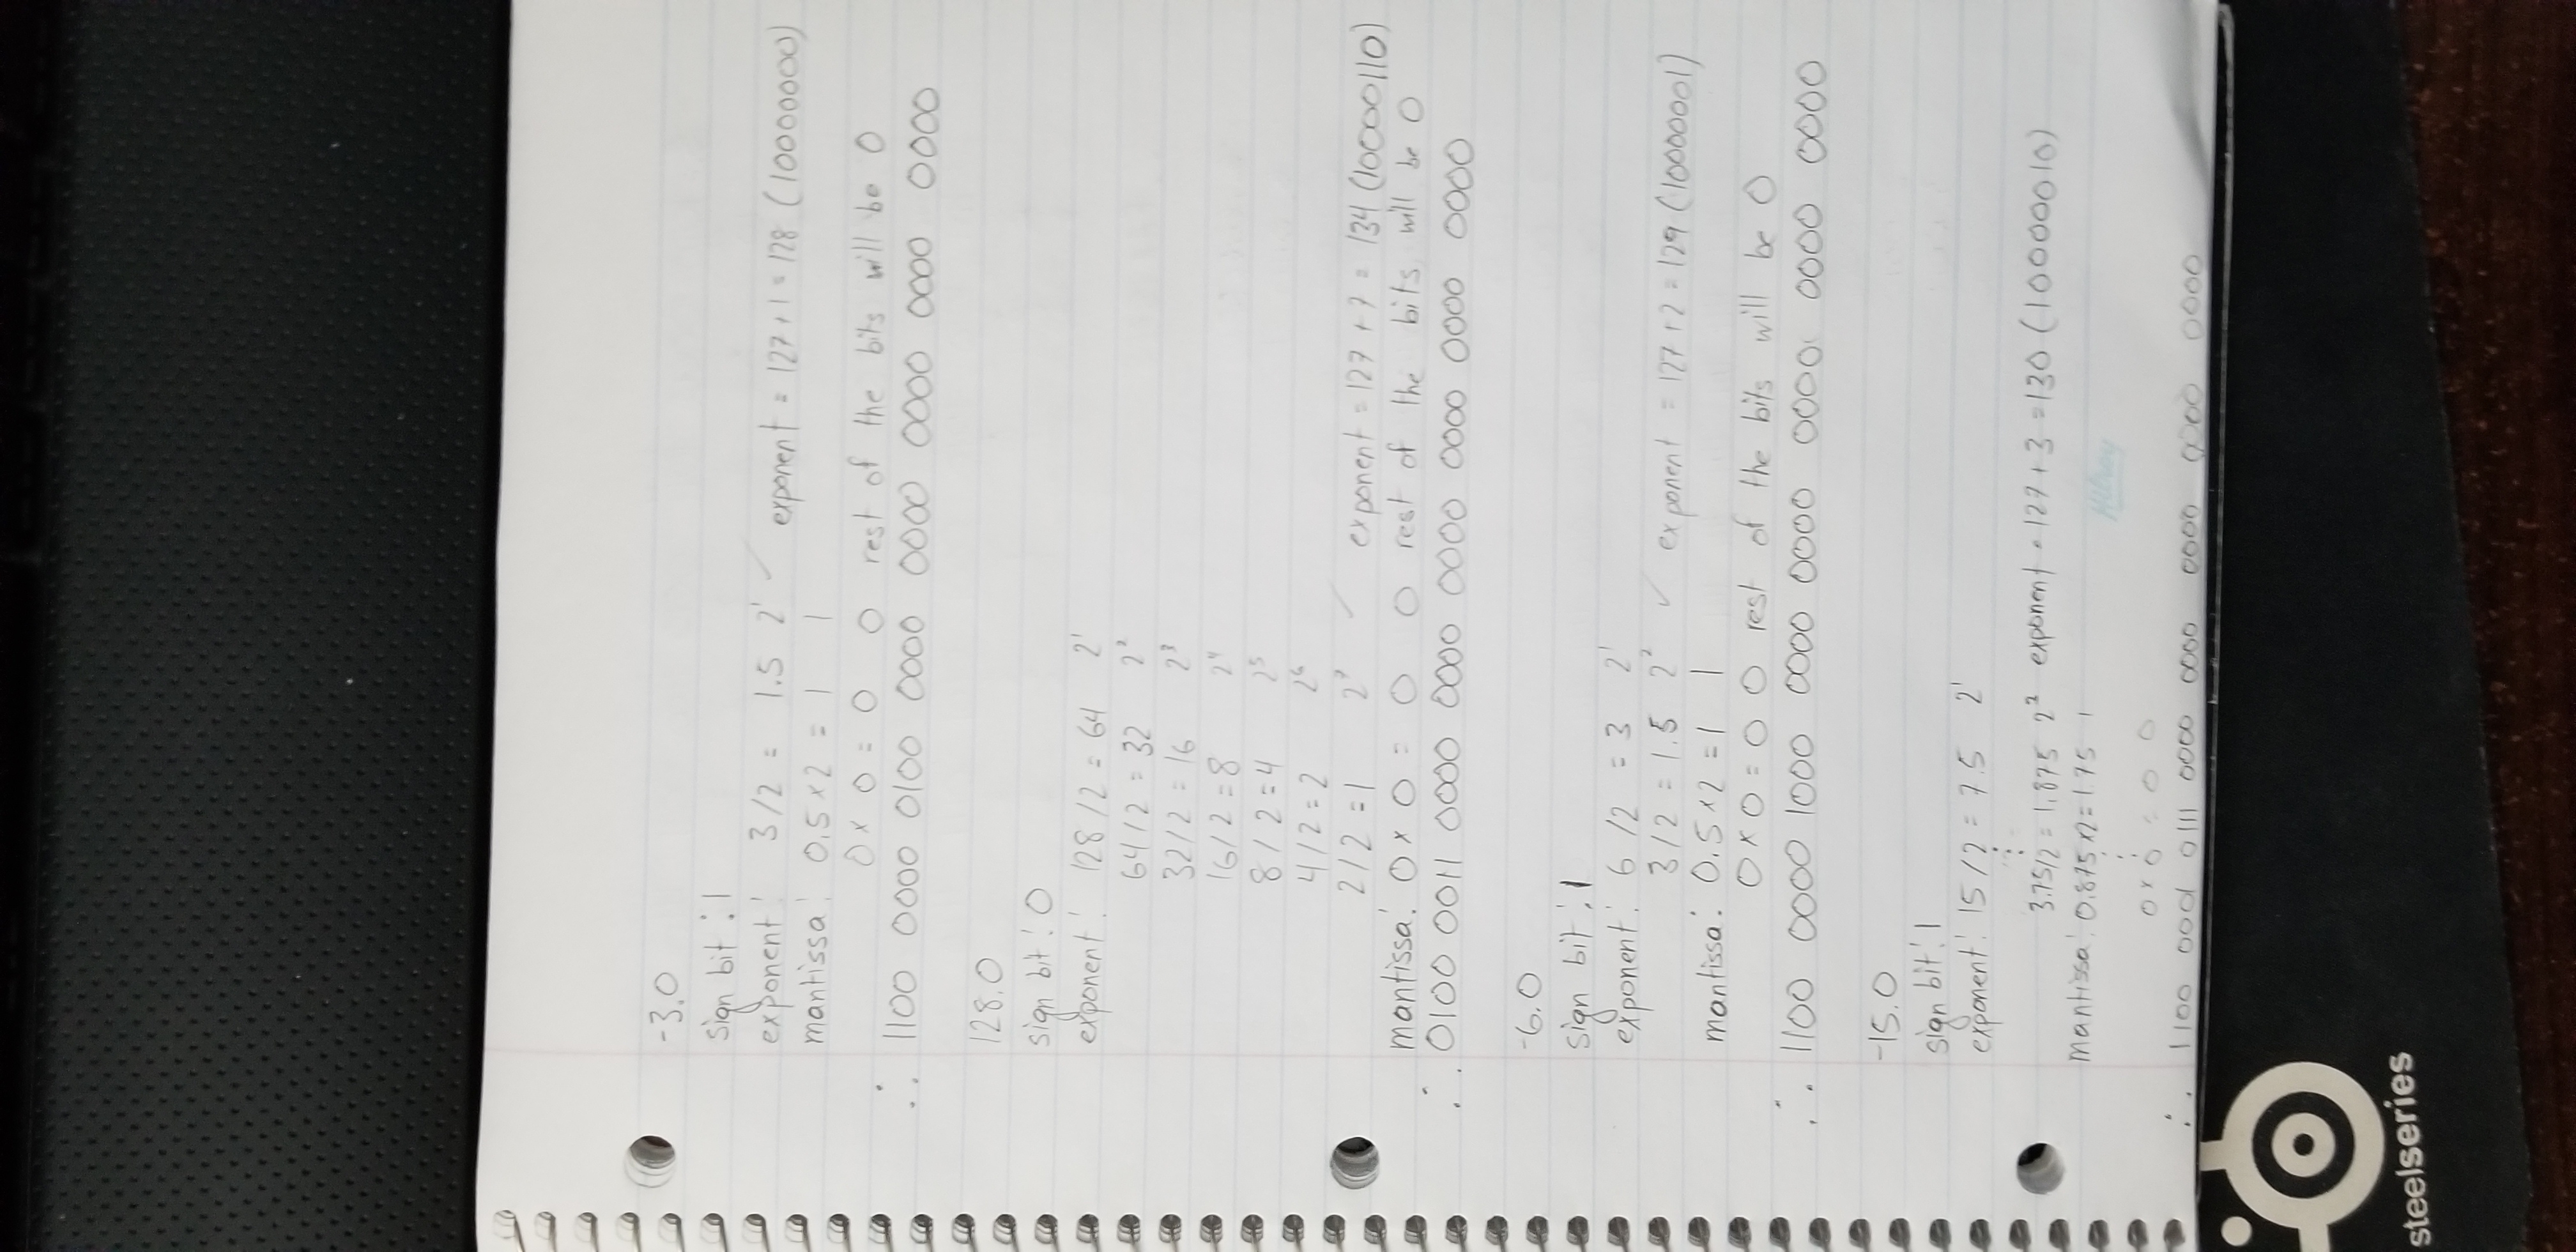 -3.0
sign bit : 1
exponent : 3/2 = 1.5 2¹ ✓ exponent = 127+1 = 128 (10000000)
mantissa : 0.5×2 = 1 1
0 × 0 = 0 0 rest of the bits will be 0
∴ 1100 0000 0100 0000 0000 0000 0000 0000
128.0
sign bit : 0
exponent : 128/2 = 64 2¹
64/2 = 32 2²
32/2 = 16 2³
16/2 = 8 2⁴
8/2 = 4 2⁵
4/2 = 2 2⁶
2/2 = 1 2⁷ ✓ exponent = 127 + 7 = 134 (10000110)
mantissa : 0 × 0 = 0 0 rest of the bits will be 0
∴ 0100 0011 0000 0000 0000 0000 0000 0000
-6.0
sign bit : 1
exponent : 6/2 = 3 2¹
3/2 = 1.5 2² ✓ exponent = 127+2 = 129 (10000001)
mantissa : 0.5×2 = 1 1
0×0 = 0 0 rest of the bits will be 0
∴ 1100 0000 1000 0000 0000 0000 0000 0000
-15.0
sign bit : 1
exponent : 15/2 = 7.5 2¹
⋮
3.75/2 = 1.875 2³ exponent = 127 + 3 = 130 (10000010)
mantissa : 0.875×2 = 1.75 1
⋮
0×0 = 0 0
∴ 1100 0001 0111 0000 0000 0000 0000 0000
Hilroy
steelseries